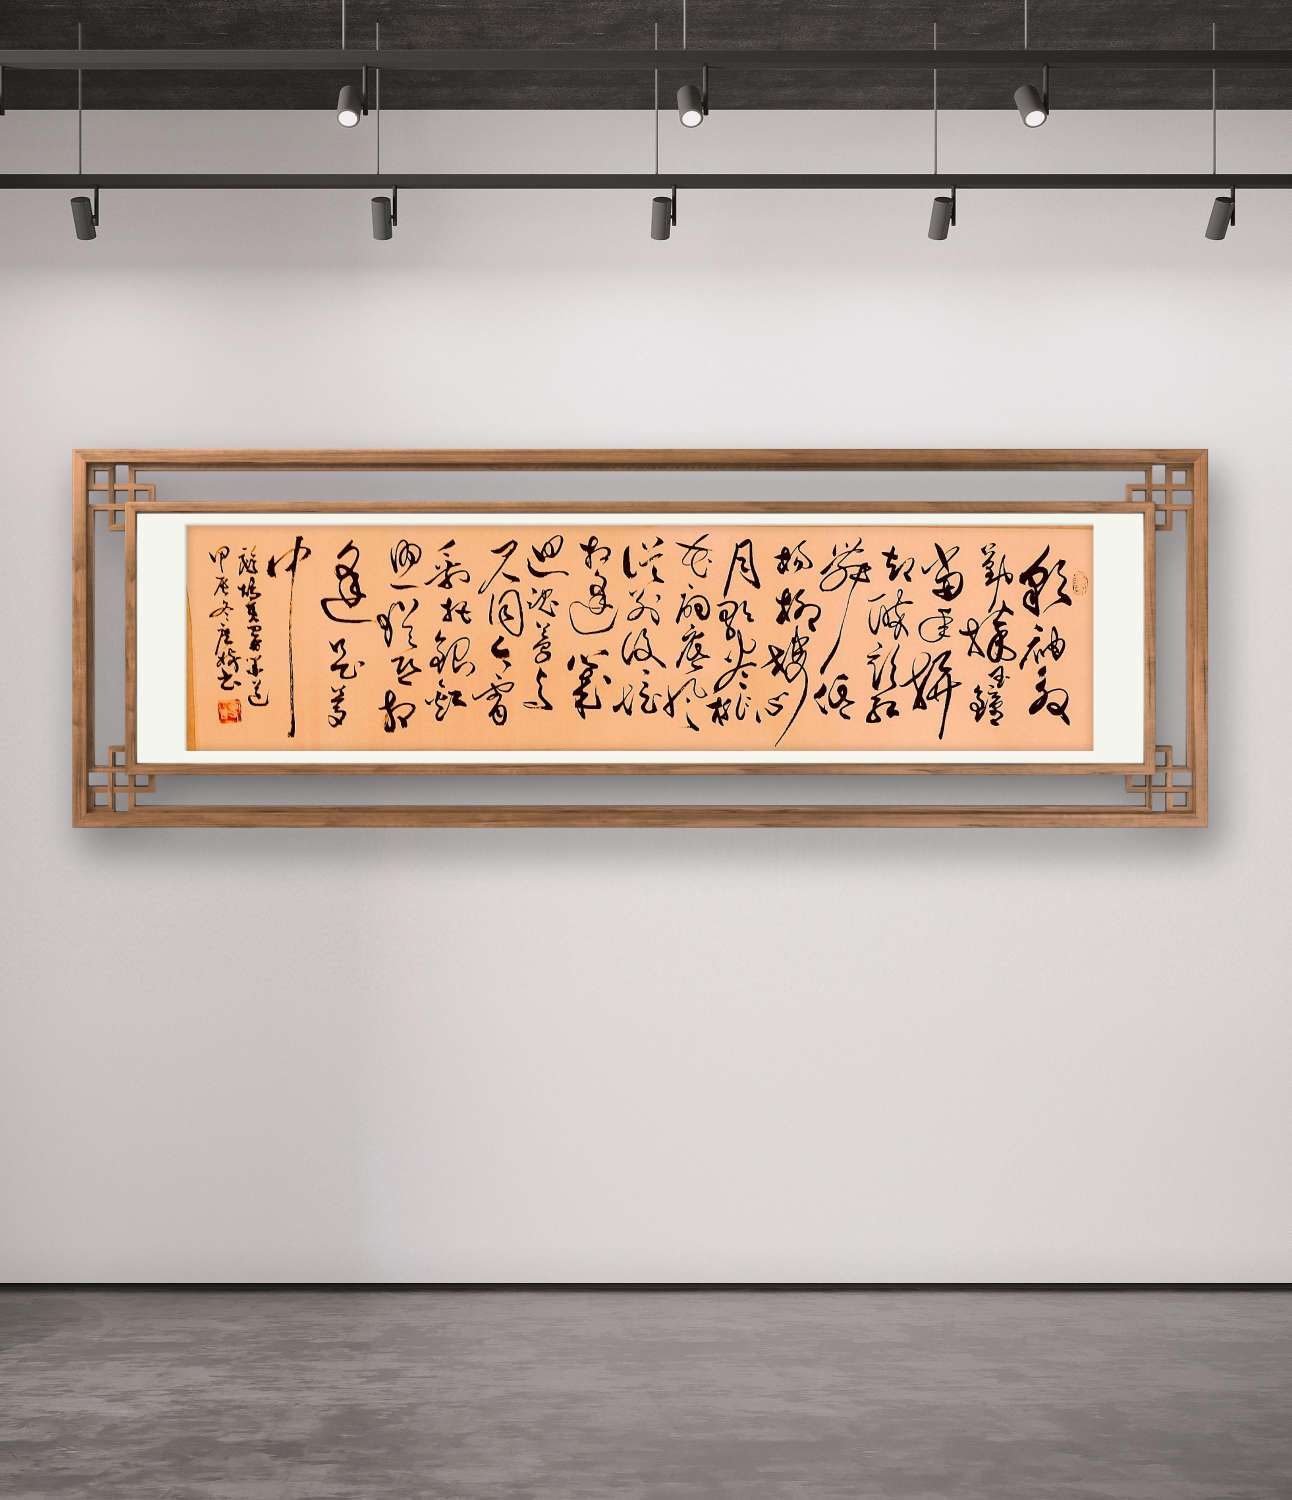 彩袖殷
勤捧玉鐘
當年拚
却醉顔紅
舞低
楊柳樓心
月歌盡桃
花扇底風
從别後憶
相逢幾
迴魂夢与
君同今宵
剩把銀釭
照猶恐相
逢是夢
中
甲辰冬 書